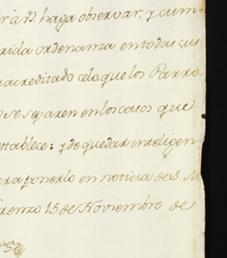 ir à V. haga observar, y cum
rida ordenanza en todas sus
acreditado celo que los Parro
o se separen en los casos que
stablece: y de quedar inteligen
ara ponerlo en noticia de S. M
orenzo 15 de Noviembre de